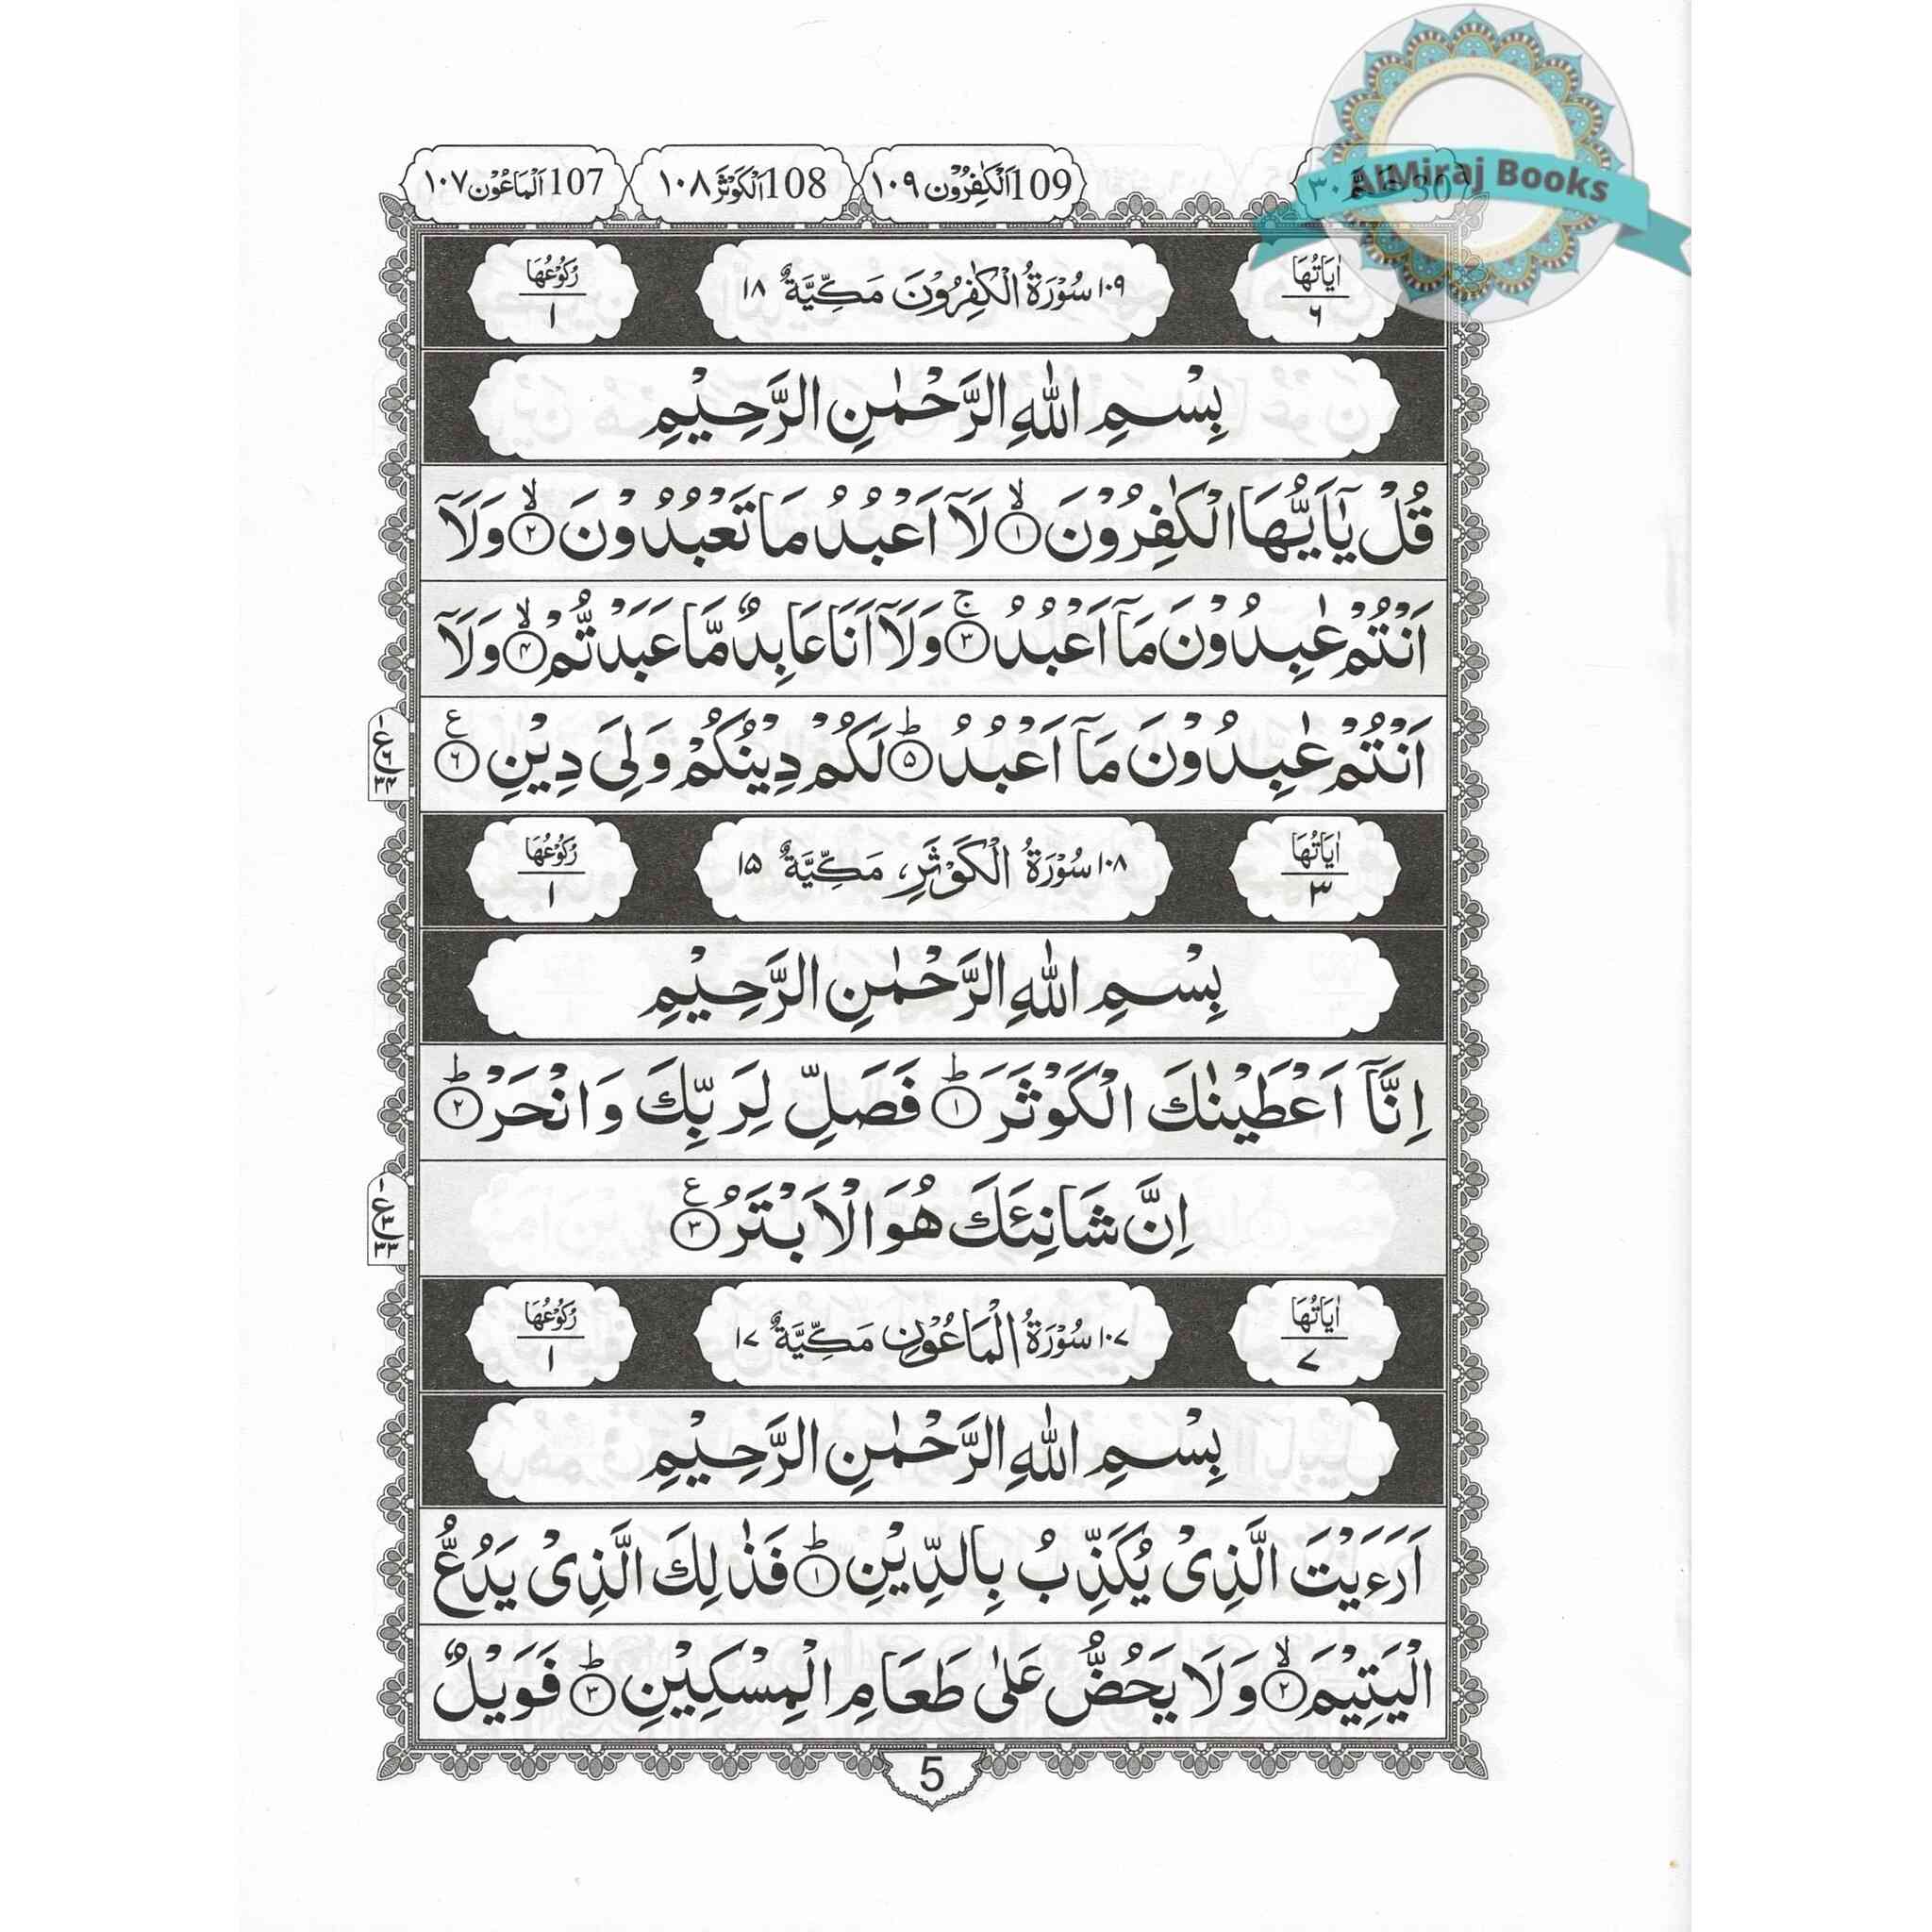 109 اَلْكٰفِرُوْن ١٠٩
108 اَلْكَوْثَر ١٠٨
107 اَلْمَاعُوْن ١٠٧
30 ٣٠
AlMiraj Books
اٰيَاتُهَا ٦
١٠٩ سُوْرَةُ الْكٰفِرُوْنَ مَكِّيَّةٌ ١٨
رُكُوْعُهَا ١
بِسْمِ اللّٰهِ الرَّحْمٰنِ الرَّحِيْمِ
قُلْ يٰۤاَيُّهَا الْكٰفِرُوْنَ ۙ﴿١﴾ لَاۤ اَعْبُدُ مَا تَعْبُدُوْنَ ۙ﴿٢﴾ وَلَاۤ
اَنْتُمْ عٰبِدُوْنَ مَاۤ اَعْبُدُ ۚ﴿٣﴾ وَلَاۤ اَنَا عَابِدٌ مَّا عَبَدْتُّمْ ۙ﴿٤﴾ وَلَاۤ
اَنْتُمْ عٰبِدُوْنَ مَاۤ اَعْبُدُ ؕ﴿٥﴾ لَكُمْ دِيْنُكُمْ وَلِىَ دِيْنِ ﴿٦﴾ ع
١ ع ٦ ٣٤
اٰيَاتُهَا ٣
١٠٨ سُوْرَةُ الْكَوْثَرِ مَكِّيَّةٌ ١٥
رُكُوْعُهَا ١
بِسْمِ اللّٰهِ الرَّحْمٰنِ الرَّحِيْمِ
اِنَّاۤ اَعْطَيْنٰكَ الْكَوْثَرَ ؕ﴿١﴾ فَصَلِّ لِرَبِّكَ وَانْحَرْ ؕ﴿٢﴾
اِنَّ شَانِئَكَ هُوَ الْاَبْتَرُ ﴿٣﴾ ع
١ ع ٣ ٣٣
اٰيَاتُهَا ٧
١٠٧ سُوْرَةُ الْمَاعُوْنِ مَكِّيَّةٌ ١٧
رُكُوْعُهَا ١
بِسْمِ اللّٰهِ الرَّحْمٰنِ الرَّحِيْمِ
اَرَءَيْتَ الَّذِىْ يُكَذِّبُ بِالدِّيْنِ ؕ﴿١﴾ فَذٰلِكَ الَّذِىْ يَدُعُّ
الْيَتِيْمَ ۙ﴿٢﴾ وَلَا يَحُضُّ عَلٰى طَعَامِ الْمِسْكِيْنِ ؕ﴿٣﴾ فَوَيْلٌ
5